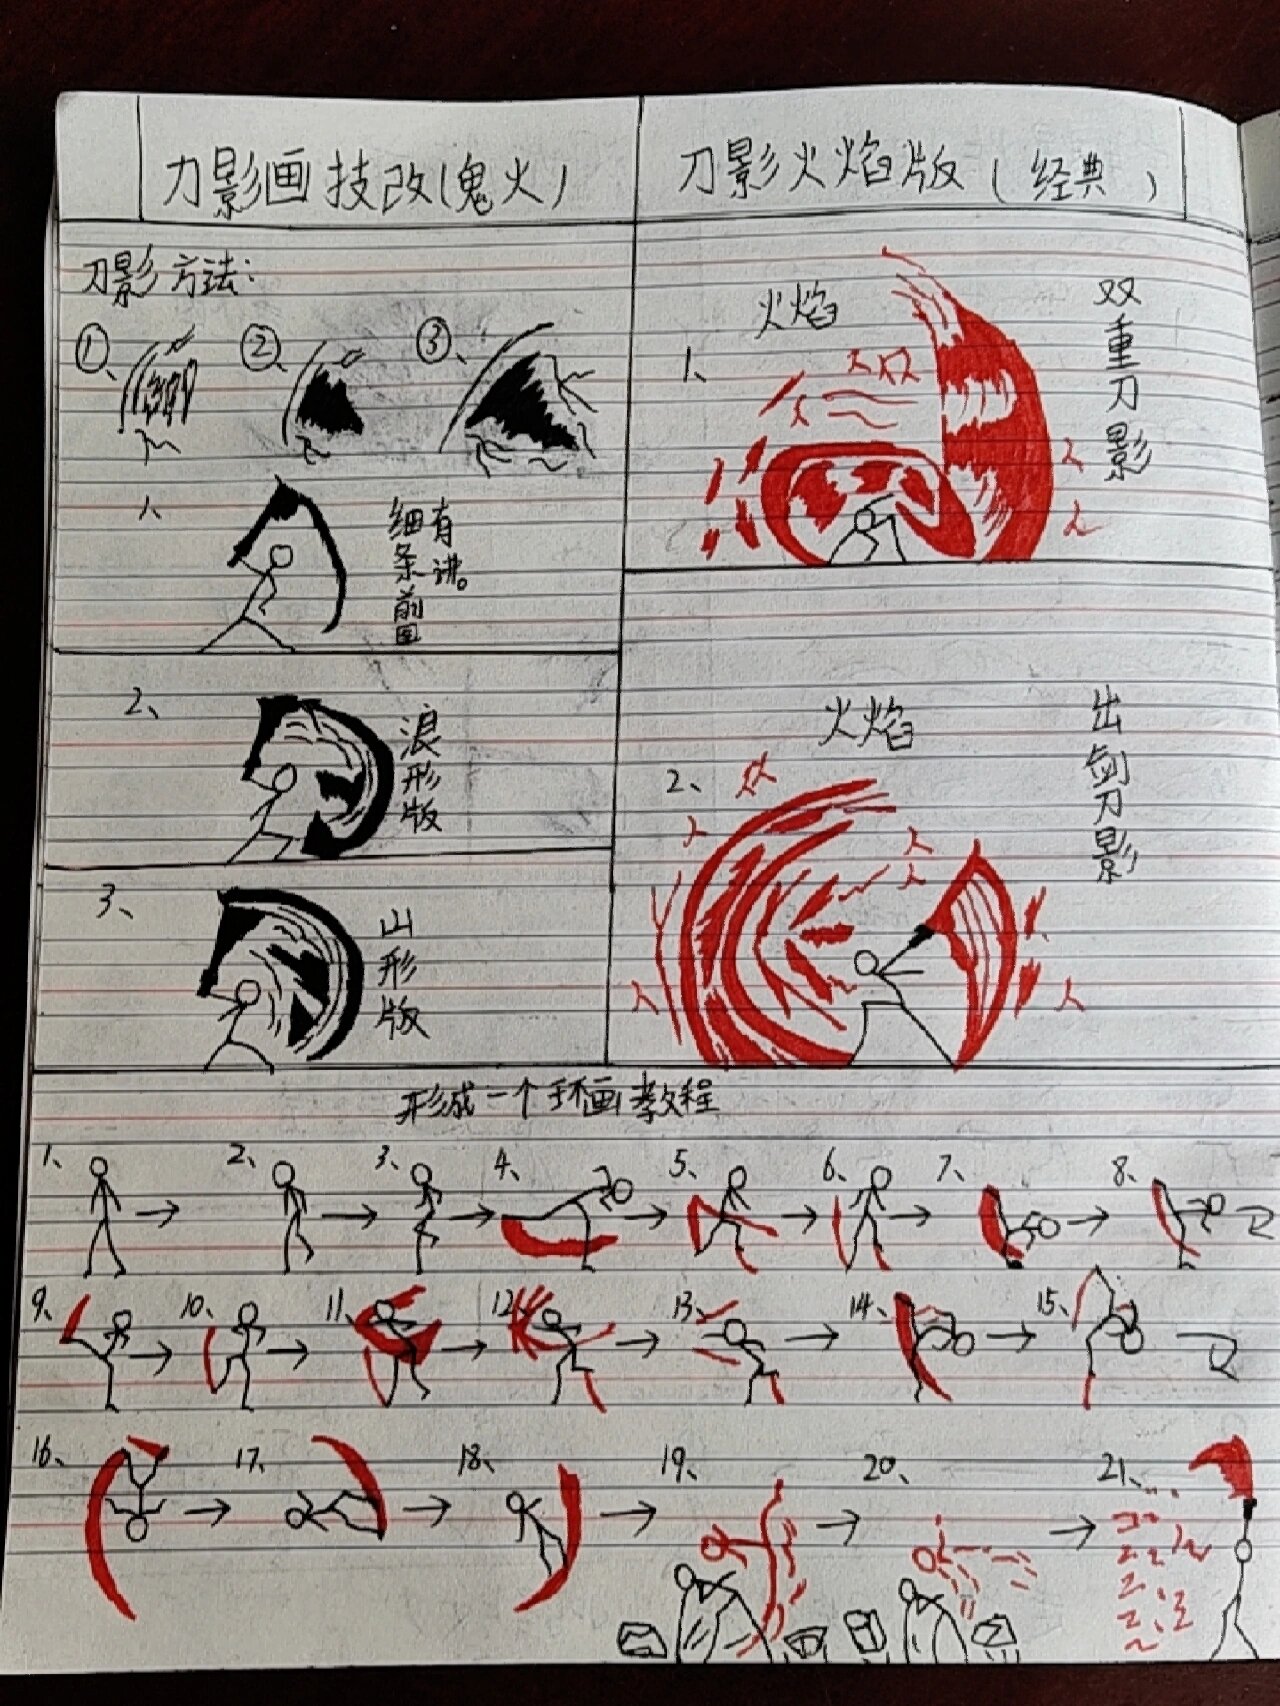 刀影画技改(鬼火)
刀影火焰版(经典)
刀影方法:
①、
②、
③、
细条前面
有讲。
2、
浪形版
3、
山形版
火焰
1、
双重刀影
火焰
2、
出剑刀影
形成一个手画教程
1、 2、 3、 4、 5、 6、 7、 8、
9、 10、 11、 12、 13、 14、 15、
16、 17、 18、 19、 20、 21、